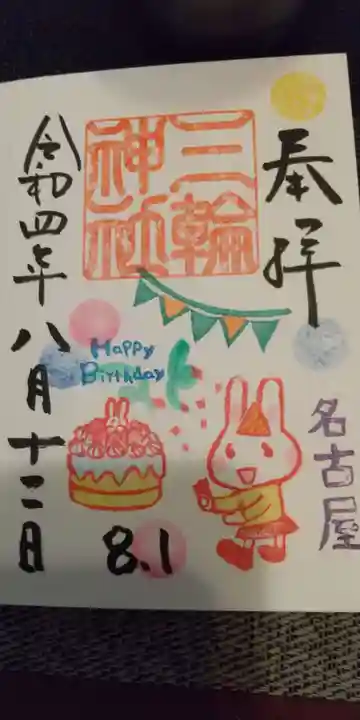 奉拝
三輪
神社
令和四年八月十二日
Happy
Birthday
名古屋
8.1